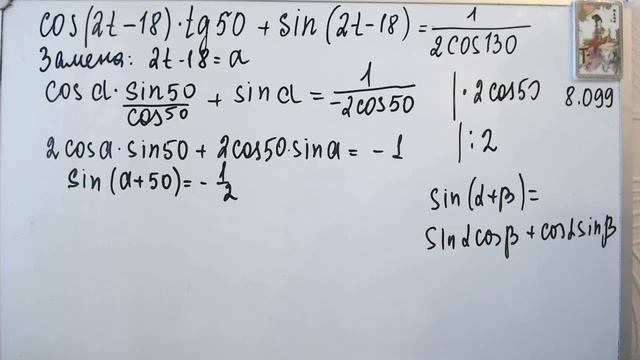 cos(2t-18)·tg50 + sin(2t-18) = 1/(2cos130)
Замена: 2t-18=α
cosα · sin50/cos50 + sinα = 1/(-2cos50) |·2cos50 8.099
2cosα·sin50 + 2cos50·sinα = -1 |:2
sin(α+50) = -1/2
sin(α+β)=
sinαcosβ + cosαsinβ